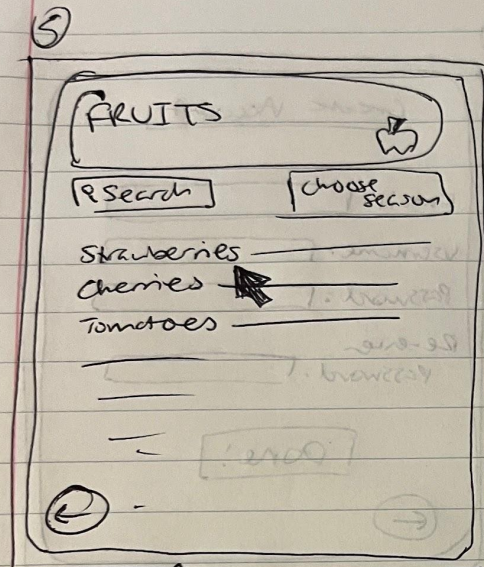 5
FRUITS
Search
Choose
season
Strawberries
Cherries
Tomatoes